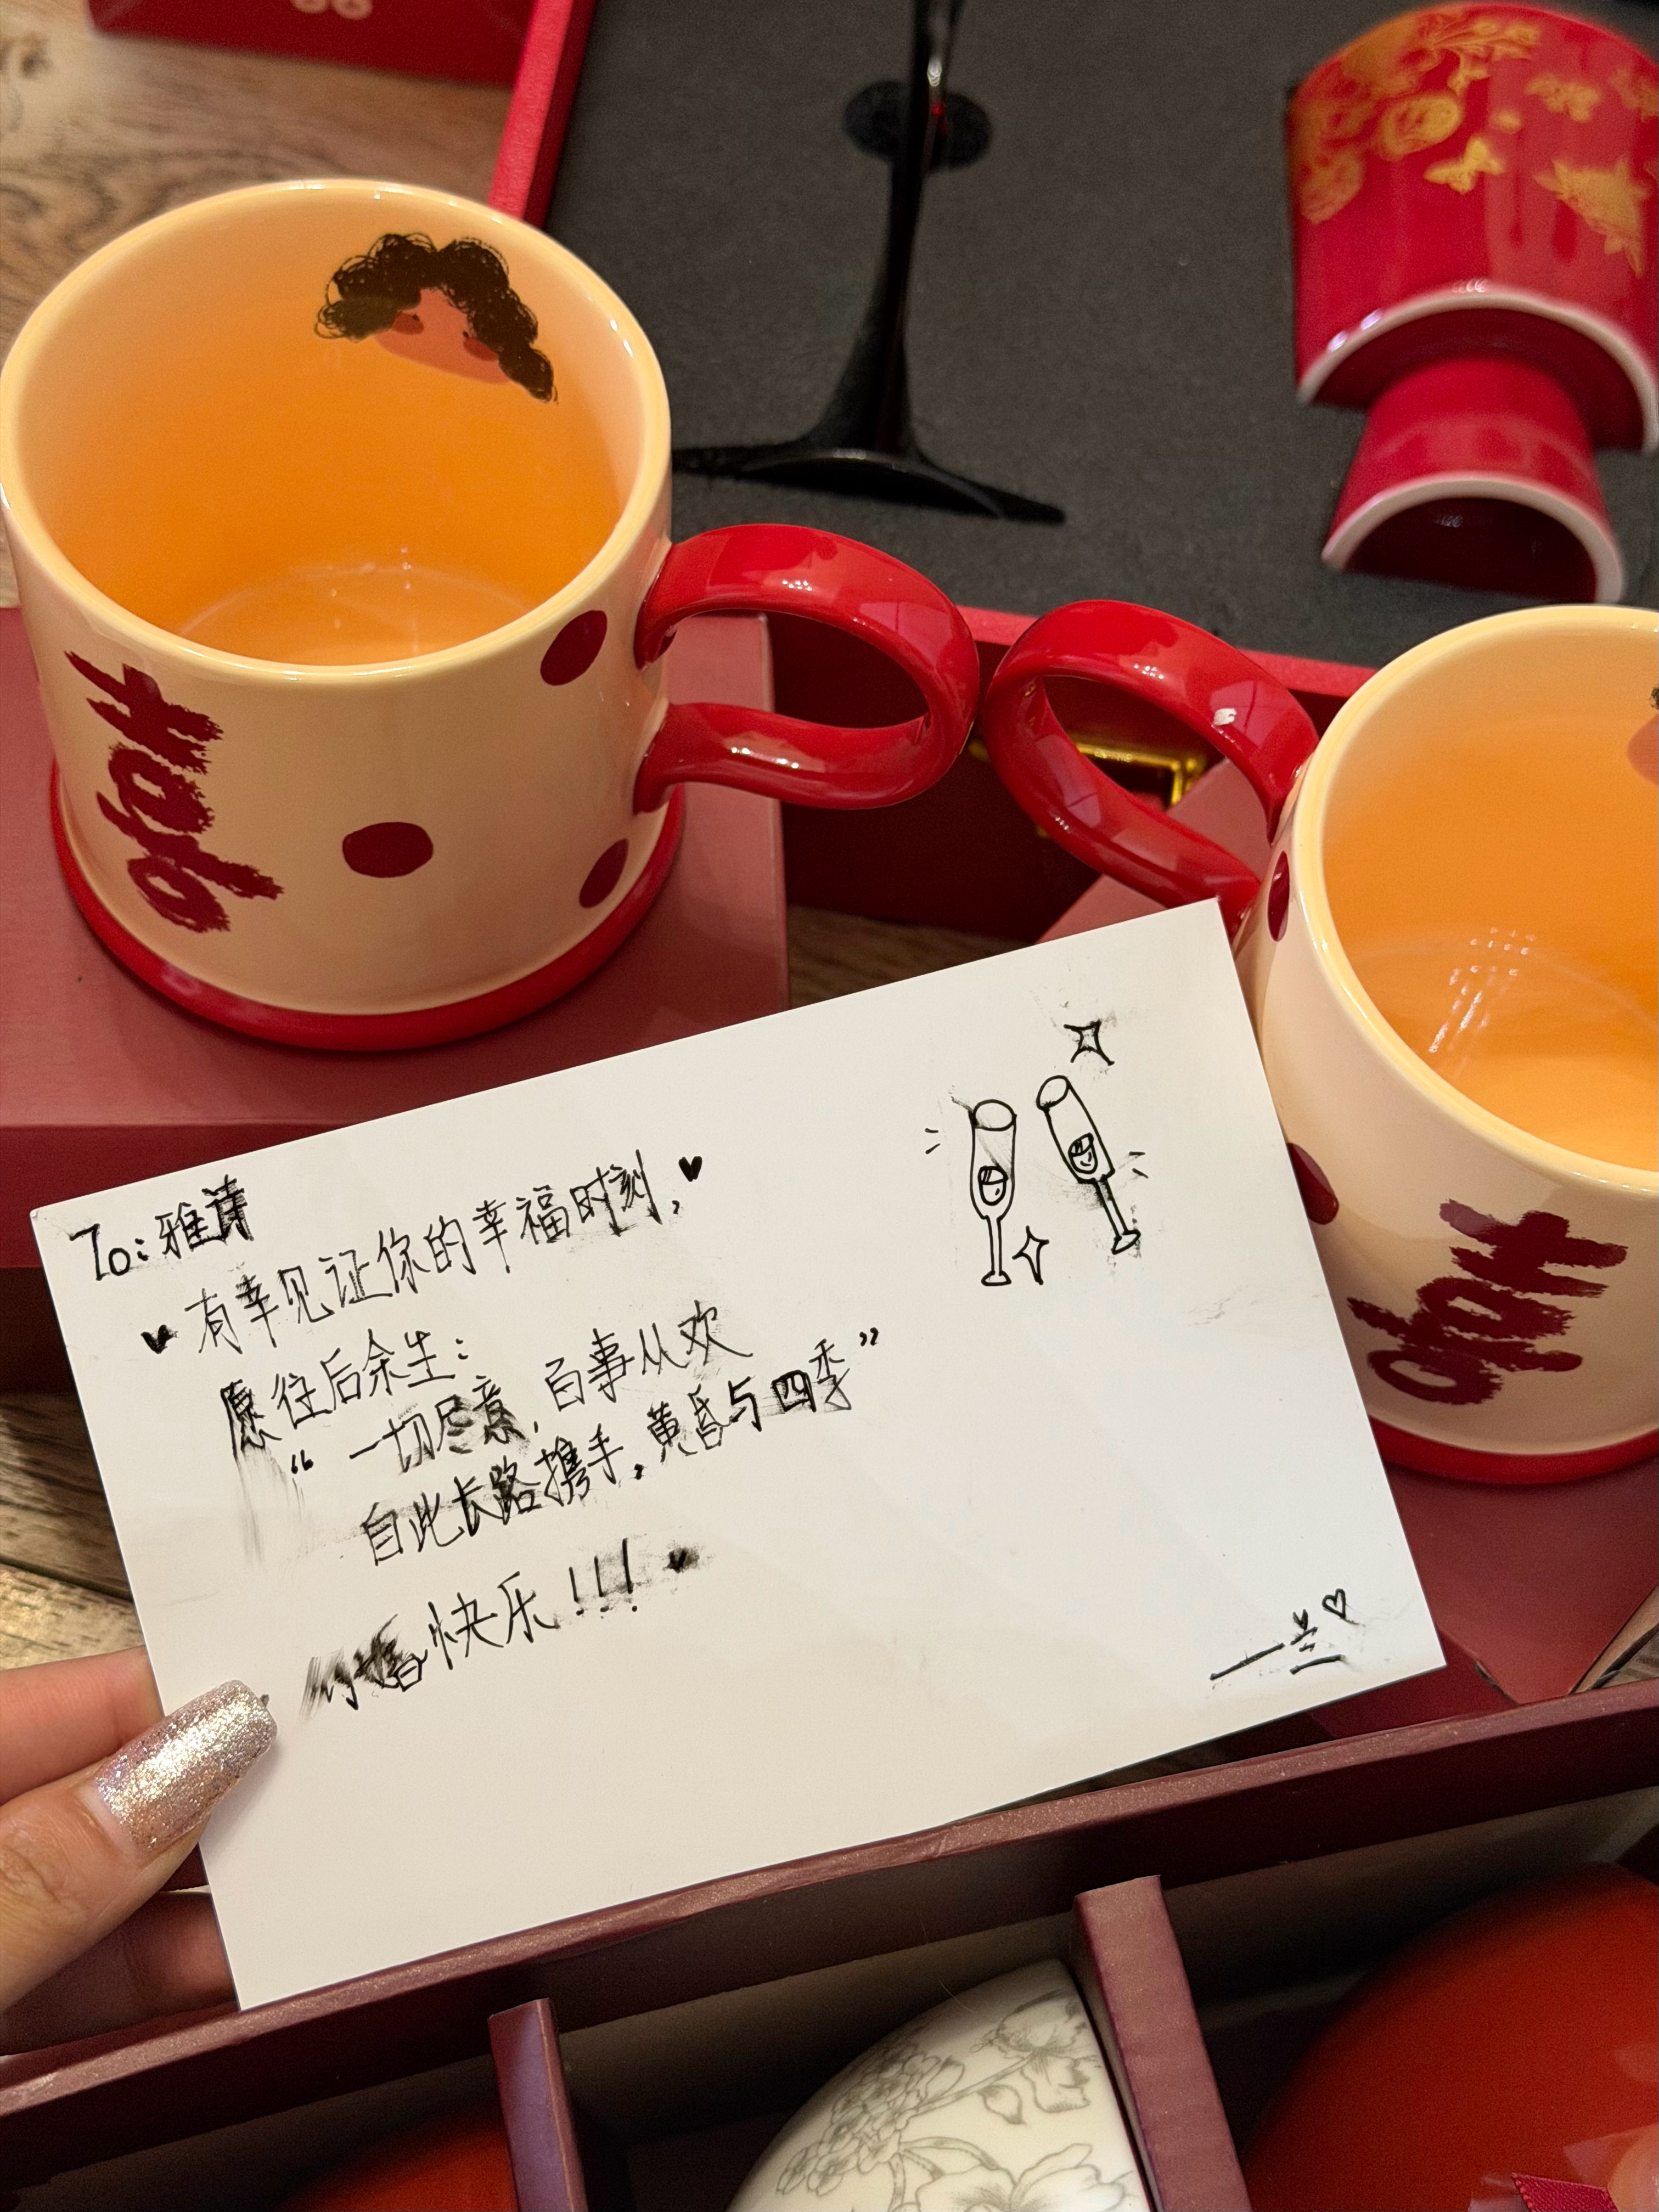 喜
喜
To: 雅诗
有幸见证你的幸福时刻,
愿往后余生:
“一切尽意,百事从欢
自此长路携手,黄昏与四季”
新婚快乐!!!
一兰